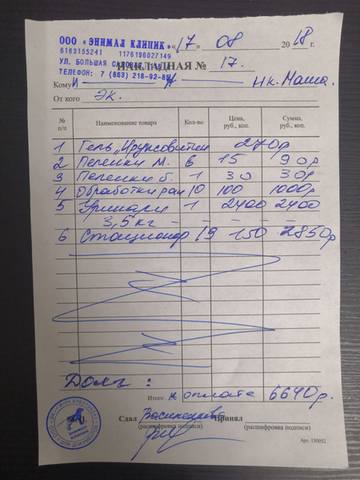 ООО «ЭНИМАЛ КЛИНИК» «17» 08 2018 г.
6163155241 1176196027149
УЛ. БОЛЬШАЯ САДОВАЯ
НАКЛАДНАЯ № 17.
ТЕЛЕФОН: 7 (863) 218-92-88
Кому И - Н - нк. Маша.
От кого эк.
№ п/п Наименование товара Кол-во Цена, руб., коп. Сумма, руб., коп.
1 Гель 270р
2 Пеленки М. 6 15 90р
3 Пеленки б. 1 30 30р
4 Обработки ран 10 100 1000р
5 1 2400 2400
3,5 кг - - - -
6 Стационар 19 150 2850р
Долг:
Итого: к оплате 6640р.
Сдал Василенко Принял
(расшифровка подписи) (расшифровка подписи)
Арт. 130052